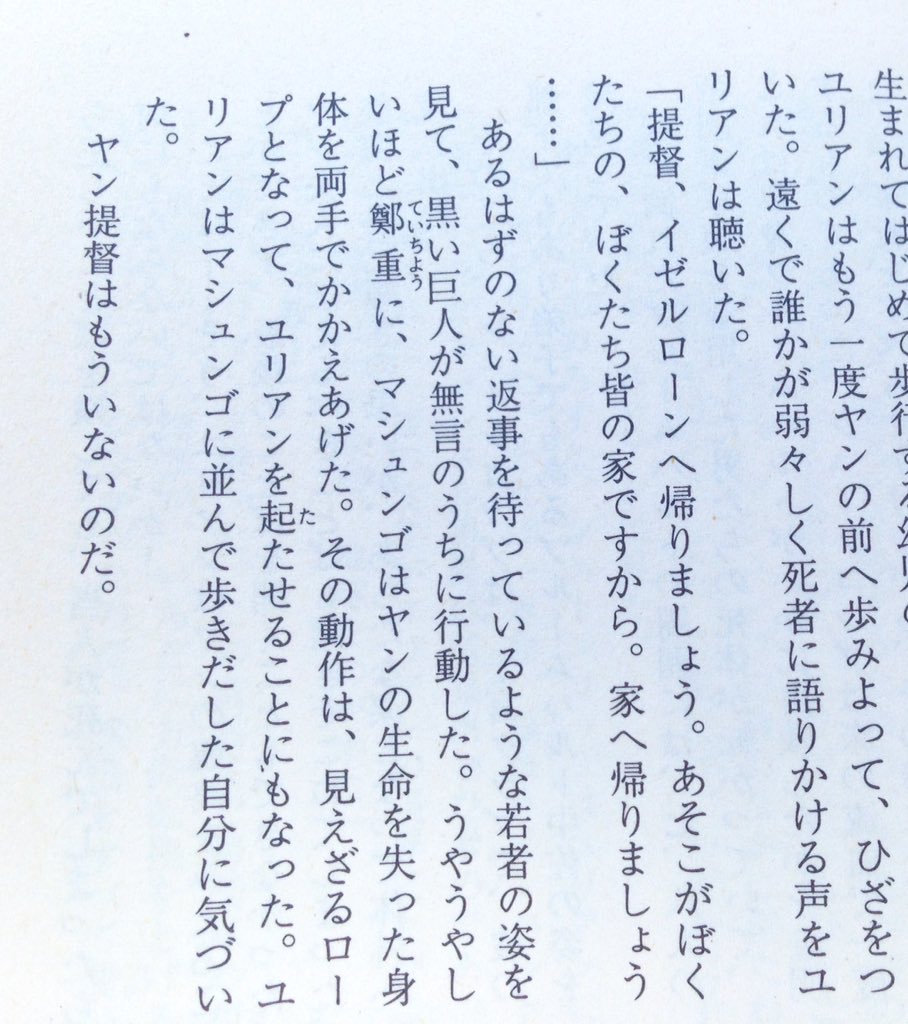 生まれてはじめて歩行する幼児の
ユリアンはもう一度ヤンの前へ歩みよって、ひざをつ
いた。遠くで誰かが弱々しく死者に語りかける声をユ
リアンは聴いた。
「提督、イゼルローンへ帰りましょう。あそこがぼく
たちの、ぼくたち皆の家ですから。家へ帰りましょう
……」
あるはずのない返事を待っているような若者の姿を
見て、黒い巨人が無言のうちに行動した。うやうやし
いほど鄭重に、マシュンゴはヤンの生命を失った身
ていちよう
体を両手でかかえあげた。その動作は、見えざるロー
プとなって、ユリアンを起たせることにもなった。ユ
た
リアンはマシュンゴに並んで歩きだした自分に気づい
た。
ヤン提督はもういないのだ。